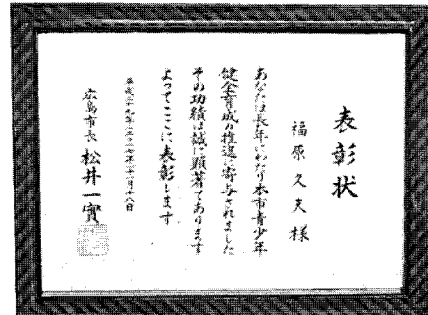 表彰状
福原久夫様
あなたは長年にわたり本市青少年
健全育成の推進に寄与されました
その功績は誠に顕著であります
よってここに表彰します
平成二十九年(二〇一七年)十一月十八日
広島市長 松井一實